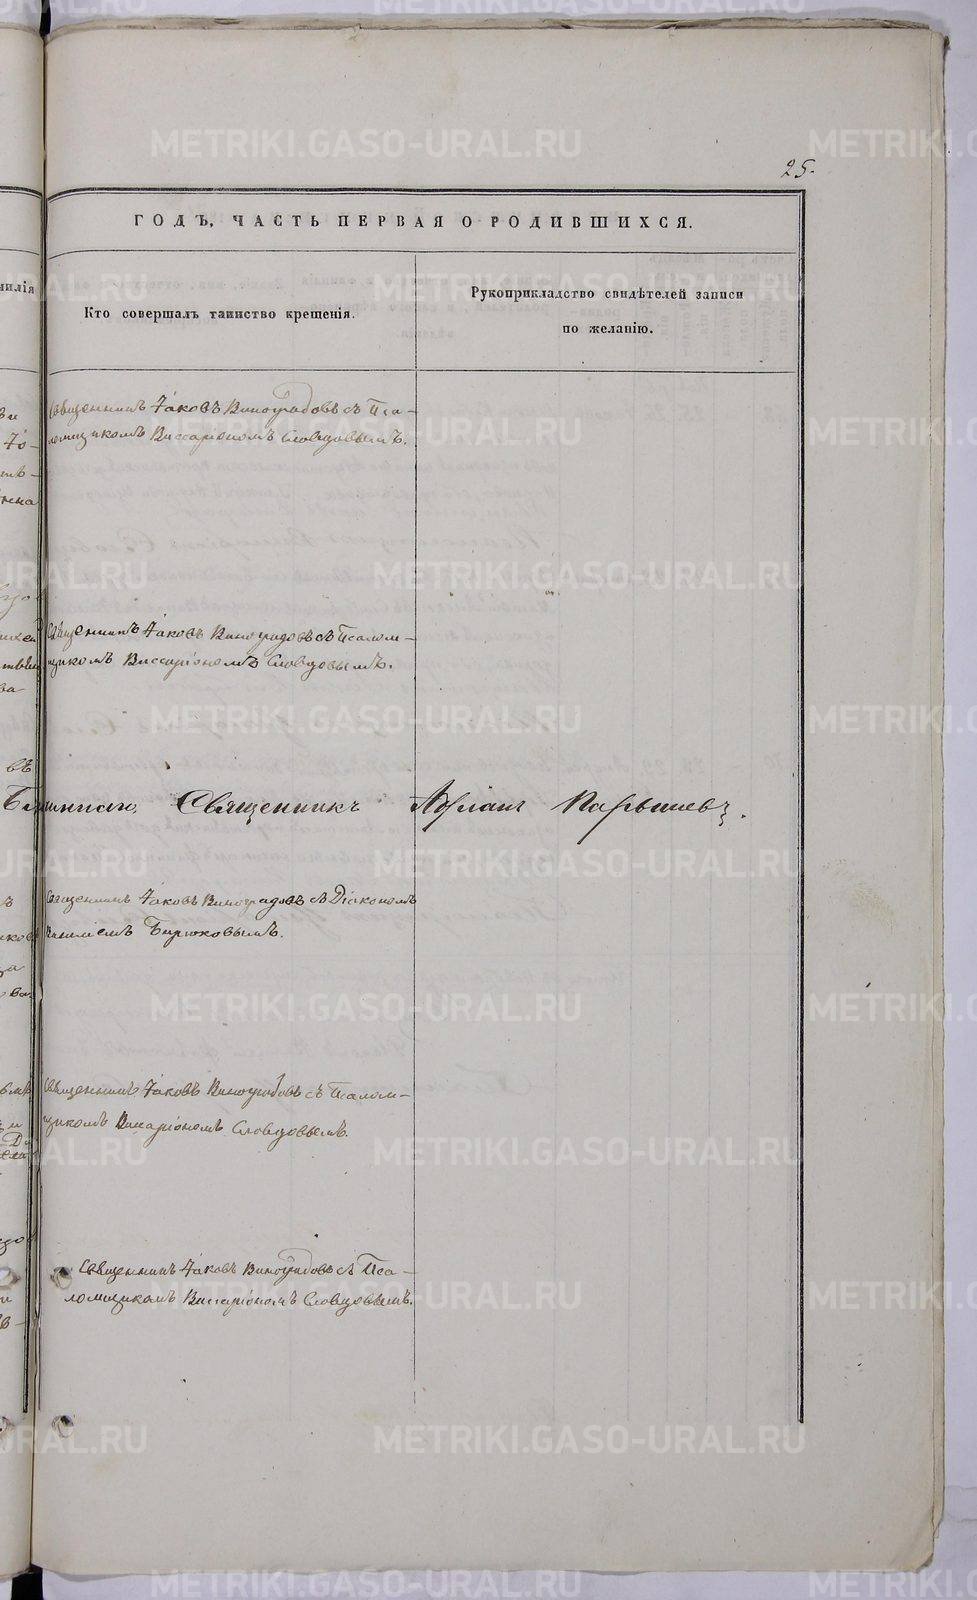 25.
ГОДЪ, ЧАСТЬ ПЕРВАЯ О РОДИВШИХСЯ.
Кто совершалъ таинство крещенія.
Рукоприкладство свидѣтелей записи
по желанію.
Священникъ Іаковъ Виноградовъ съ Пса-
ломщикомъ Виссаріономъ Словцовымъ.
Священникъ Іаковъ Виноградовъ съ Псалом-
щикомъ Виссаріономъ Словцовымъ.
Священникъ Адріанъ Парышевъ.
Священникъ Іаковъ Виноградовъ съ Діакономъ
Бирюковымъ.
Священникъ Іаковъ Виноградовъ съ Псалом-
щикомъ Виссаріономъ Словцовымъ.
Священникъ Іаковъ Виноградовъ съ Пса-
ломщикомъ Виссаріономъ Словцовымъ.
METRIKI.GASO-URAL.RU